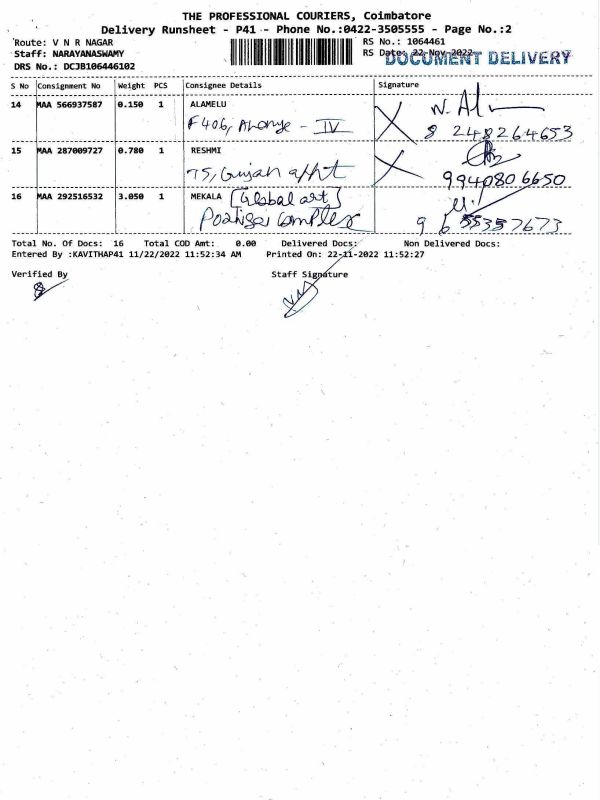 THE PROFESSIONAL COURIERS, Coimbatore
Delivery Runsheet - P41 - Phone No.:0422-3505555 - Page No.:2
Route: V N R NAGAR
RS No.: 1064461
Staff: NARAYANASWAMY
RS Date: 22-Nov-2022
DOCUMENT DELIVERY
DRS No.: DCJB106446102
S No Consignment No Weight PCS Consignee Details Signature
14 MAA 566937587 0.150 1 ALAMELU
F 406, - IV
8 248264653
15 MAA 287009727 0.780 1 RESHMI
T5, Gunjan appt
9940806650
16 MAA 292516532 3.050 1 MEKALA [Global art]
Complex
Total No. Of Docs: 16 Total COD Amt: 0.00 Delivered Docs: Non Delivered Docs:
Entered By :KAVITHAP41 11/22/2022 11:52:34 AM Printed On: 22-11-2022 11:52:27
Verified By Staff Signature